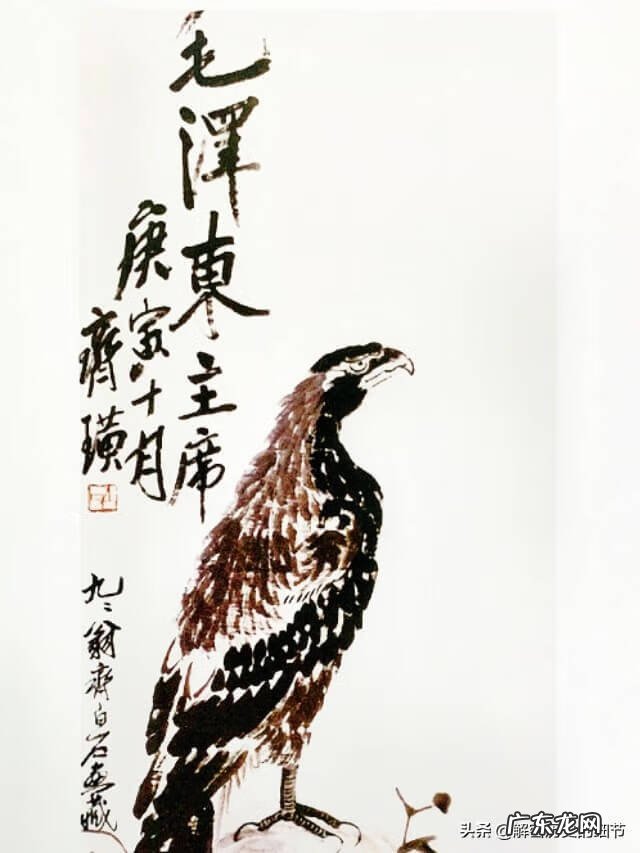 毛澤東主席
庚寅十月
齊璜
九二翁齊白石畫藏
头条 @解
的细节
广东龙网